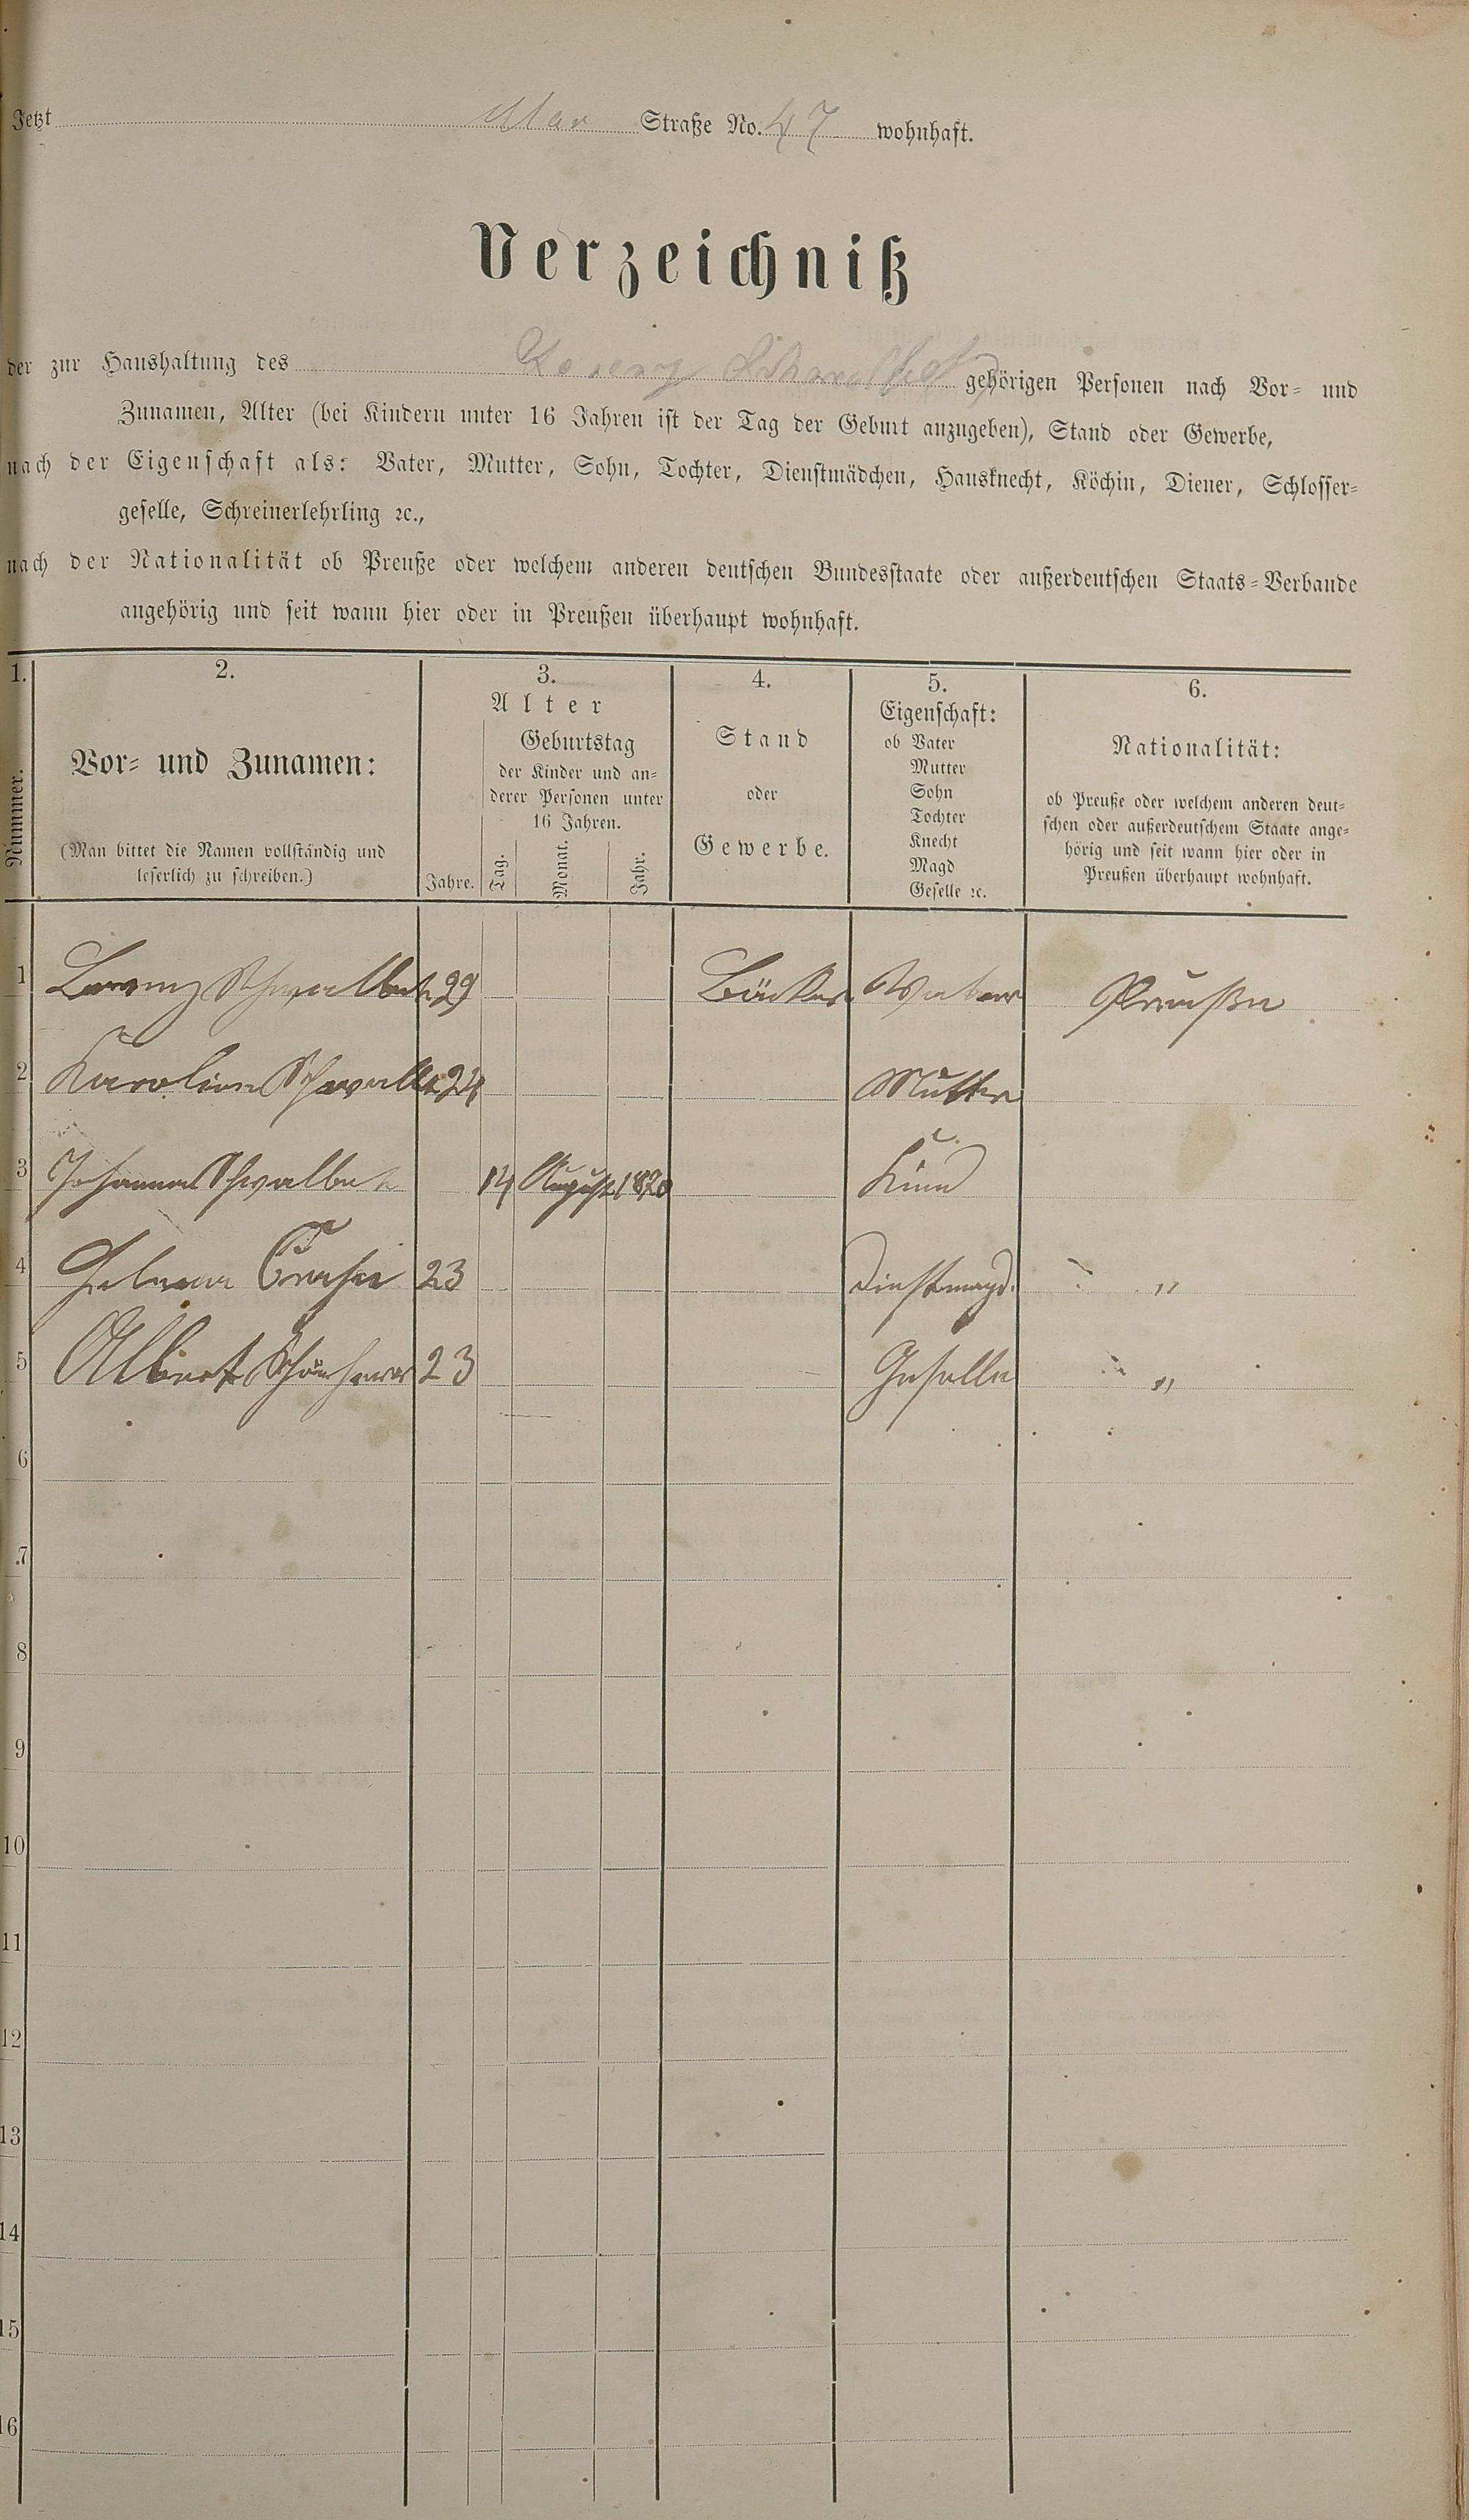 Jetzt Straße No. 47 wohnhaft.
Verzeichniß
der zur Haushaltung des Lorenz Schwalbe gehörigen Personen nach Vor- und
Zunamen, Alter (bei Kindern unter 16 Jahren ist der Tag der Geburt anzugeben), Stand oder Gewerbe,
nach der Eigenschaft als: Vater, Mutter, Sohn, Tochter, Dienstmädchen, Hausknecht, Köchin, Diener, Schlosser-
geselle, Schreinerlehrling ꝛc.,
nach der Nationalität ob Preuße oder welchem anderen deutschen Bundesstaate oder außerdeutschen Staats-Verbande
angehörig und seit wann hier oder in Preußen überhaupt wohnhaft.
1.
Nummer.
2.
Vor- und Zunamen:
(Man bittet die Namen vollständig und
leserlich zu schreiben.)
3.
Alter
Jahre.
Geburtstag
der Kinder und an-
derer Personen unter
16 Jahren.
Tag. Monat. Jahr.
4.
Stand
oder
Gewerbe.
5.
Eigenschaft:
ob Vater
Mutter
Sohn
Tochter
Knecht
Magd
Geselle ꝛc.
6.
Nationalität:
ob Preuße oder welchem anderen deut-
schen oder außerdeutschem Staate ange-
hörig und seit wann hier oder in
Preußen überhaupt wohnhaft.
1 Lorenz Schwalbe 29 Bäcker Vater Preuße
2 Karoline Schwalbe 24 Mutter
3 Johanna Schwalbe 14 August 1870 Kind
4 23 Dienstmagd. "
5 Albert 23 Geselle "
6
7
8
9
10
11
12
13
14
15
16